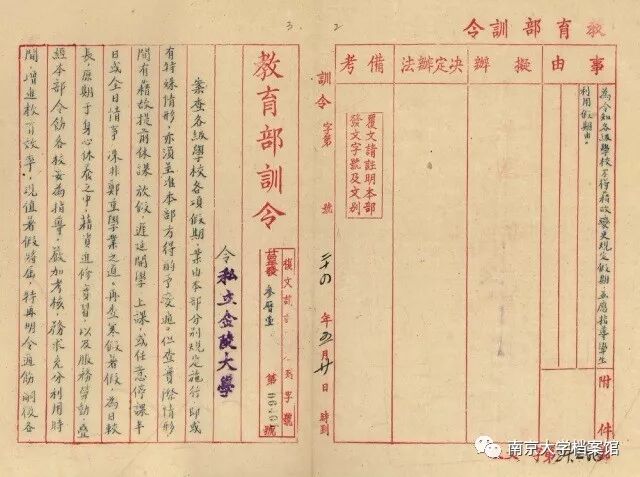 教育部訓令
事由
擬辦
決定辦法
備考
附件
為令知各級學校不得藉故變更規定假期並應指導學生
利用假期由
覆文請註明本部
發文字號及文別
訓令 字第 號
二十四年五月廿日 時到
教育部訓令
第 號
令私立金陵大學
案查各級學校各項假期，業由本部分別規定施行，即或
有特殊情形，亦須呈准本部方得酌予變通，但查實際情形
間有藉故提前休課放假，遲延開學上課，或任意停課半
日或全日情事，殊非鄭重學業之道。再查寒假暑假，為日較
長，應期于身心休養之中，藉資進修實習以及服務勞動，疊
經本部令飭各校妥為指導，嚴加考核，務求充分利用時
間，增進教育效率。現值暑假將屆，特再明令通飭，嗣後各
2
3
南京大学档案馆